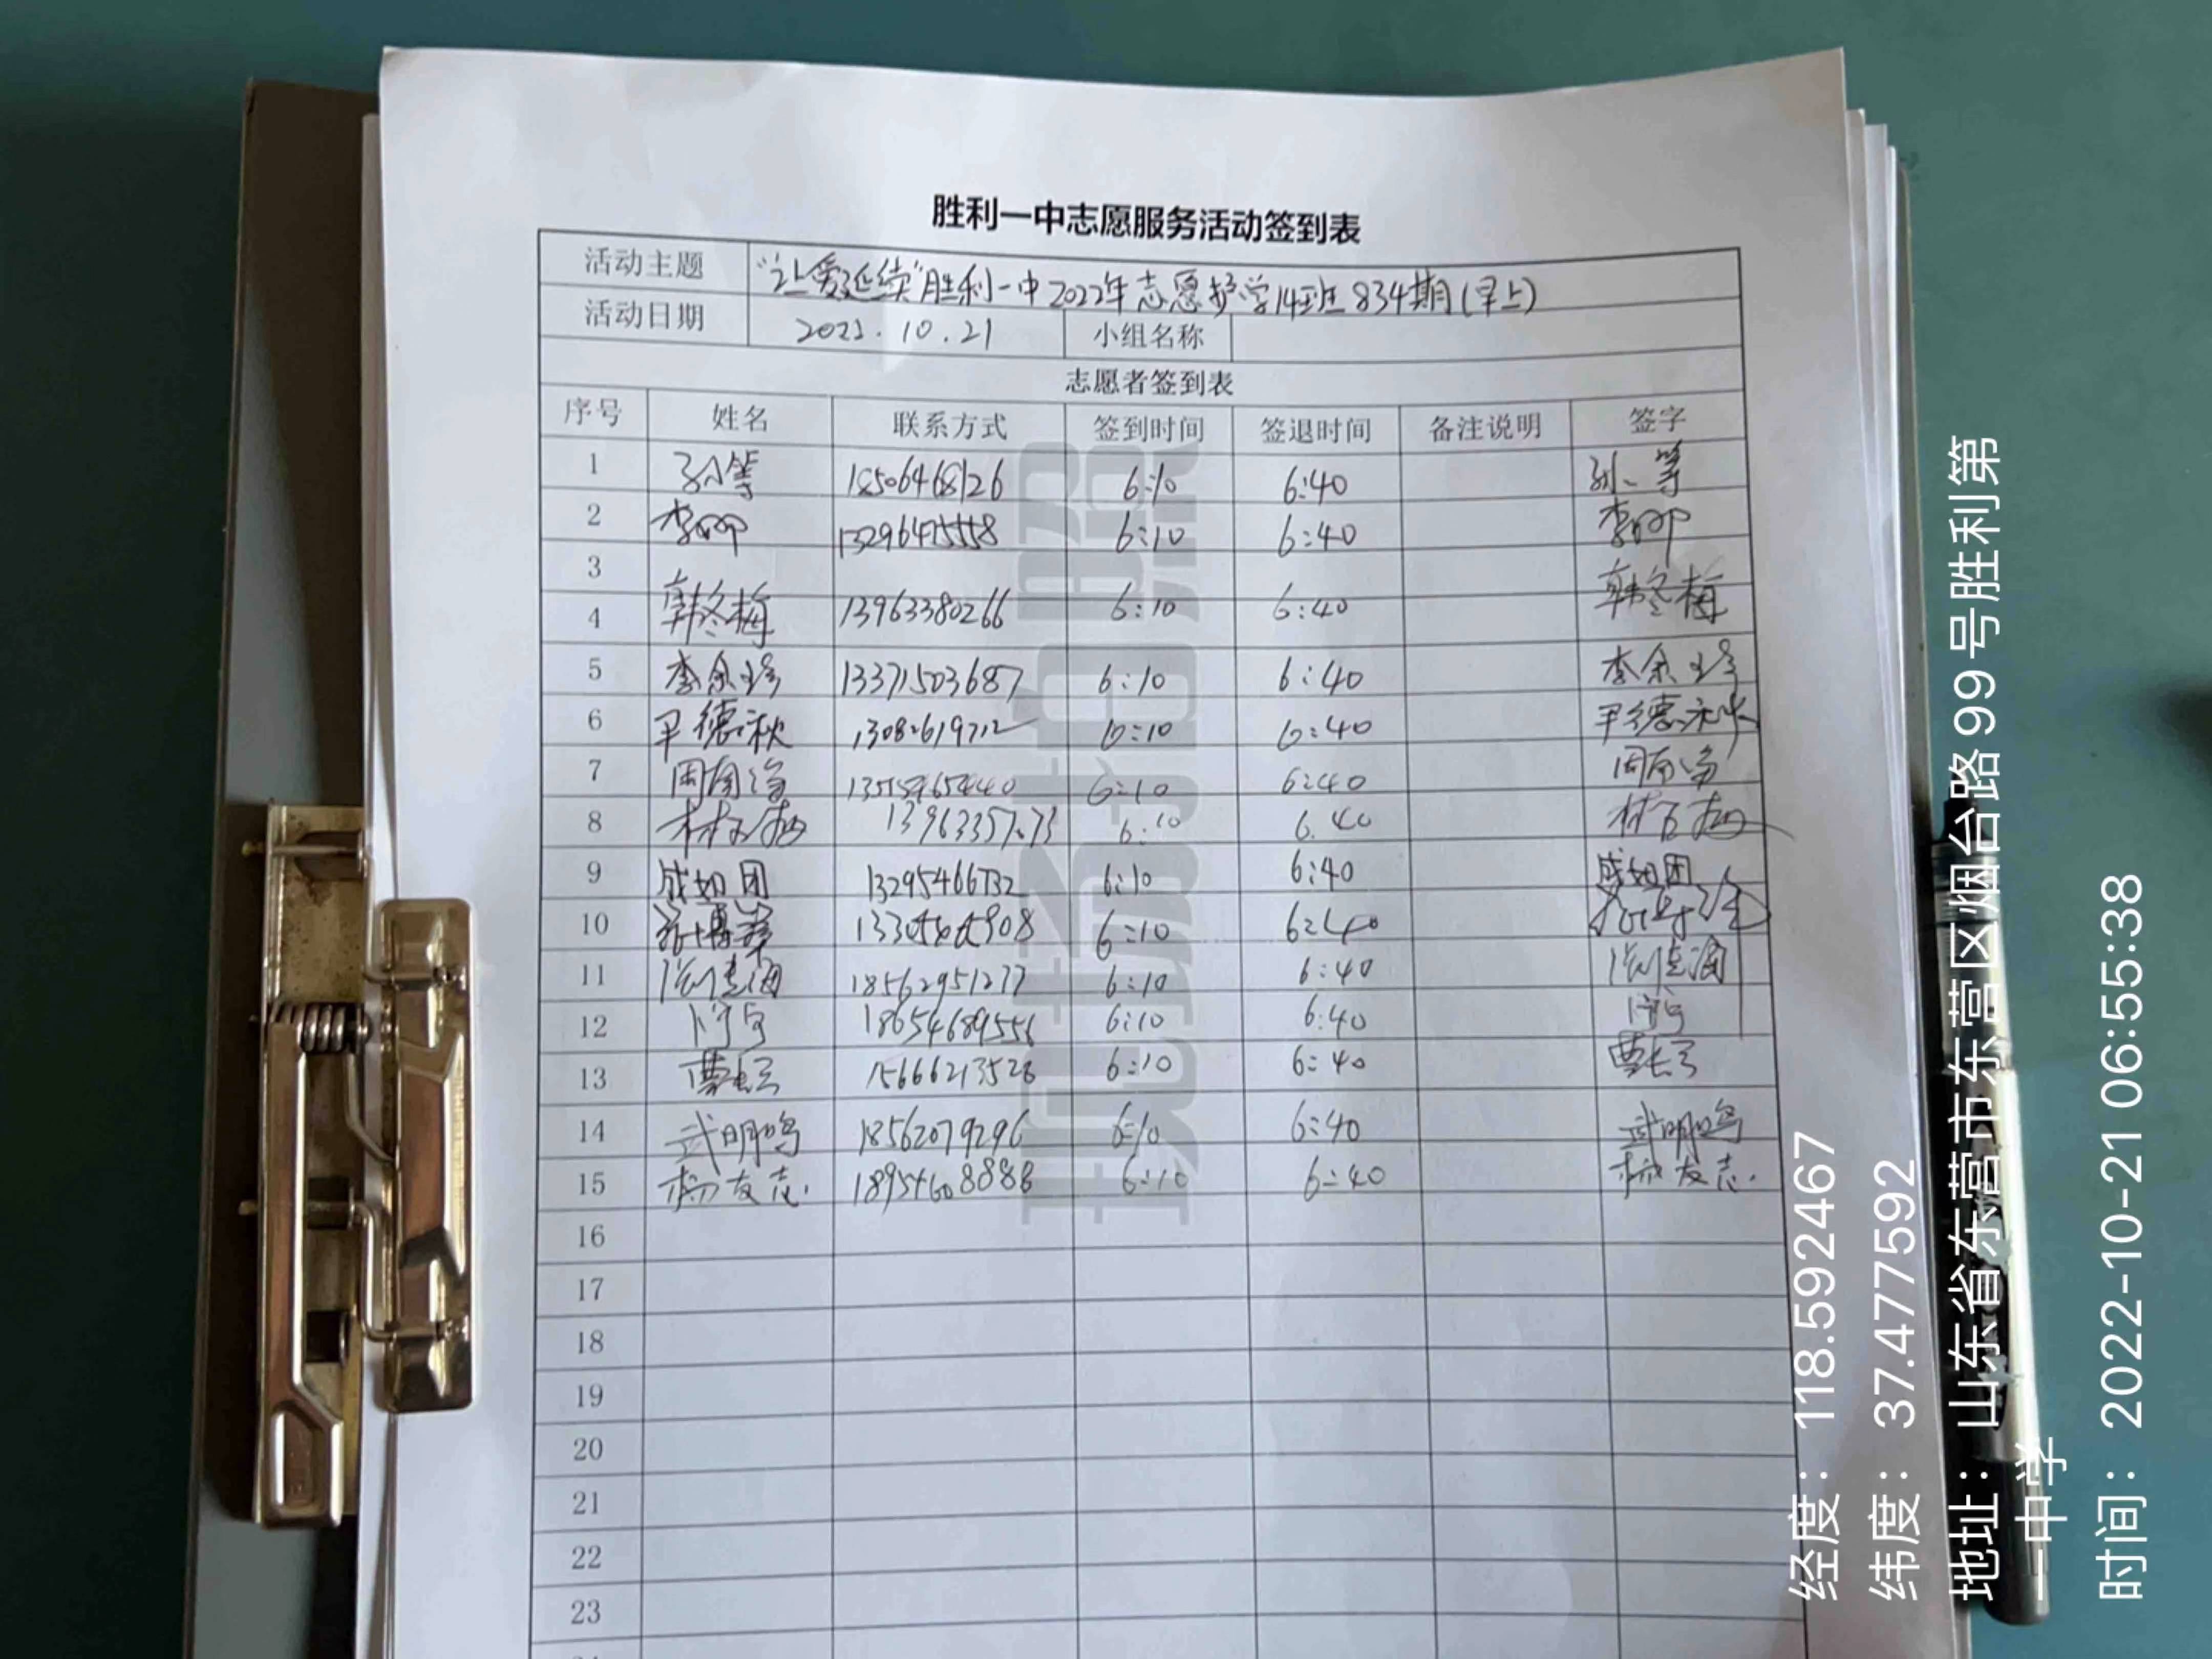 胜利一中志愿服务活动签到表
活动主题 "让爱延续"胜利一中2022年志愿护学14班834期(早上)
活动日期 2022.10.21 小组名称
志愿者签到表
序号 姓名 联系方式 签到时间 签退时间 备注说明 签字
1 18506468126 6:10 6:40
2 13296475558 6:10 6:40
3
4 韩冬梅 13963380266 6:10 6:40 韩冬梅
5 13371503687 6:10 6:40
6 尹德秋 6:10 6:40 尹德秋
7 6:10 6:40
8 6:10 6.40
9 成如团 13295466732 6:10 6:40 成如团
10 6:10 6:40
11 18562951277 6:10 6:40
12 18654689556 6:10 6:40
13 15666213526 6:10 6:40
14 武明鸣 18562079296 6:10 6:40 武明鸣
15 杨友志. 18954608888 6:10 6:40 杨友志.
16
17
18
19
20
21
22
23
现场拍照
经度：118.592467
纬度：37.477592
地址：山东省东营市东营区烟台路99号胜利第
一中学
时间：2022-10-21 06:55:38